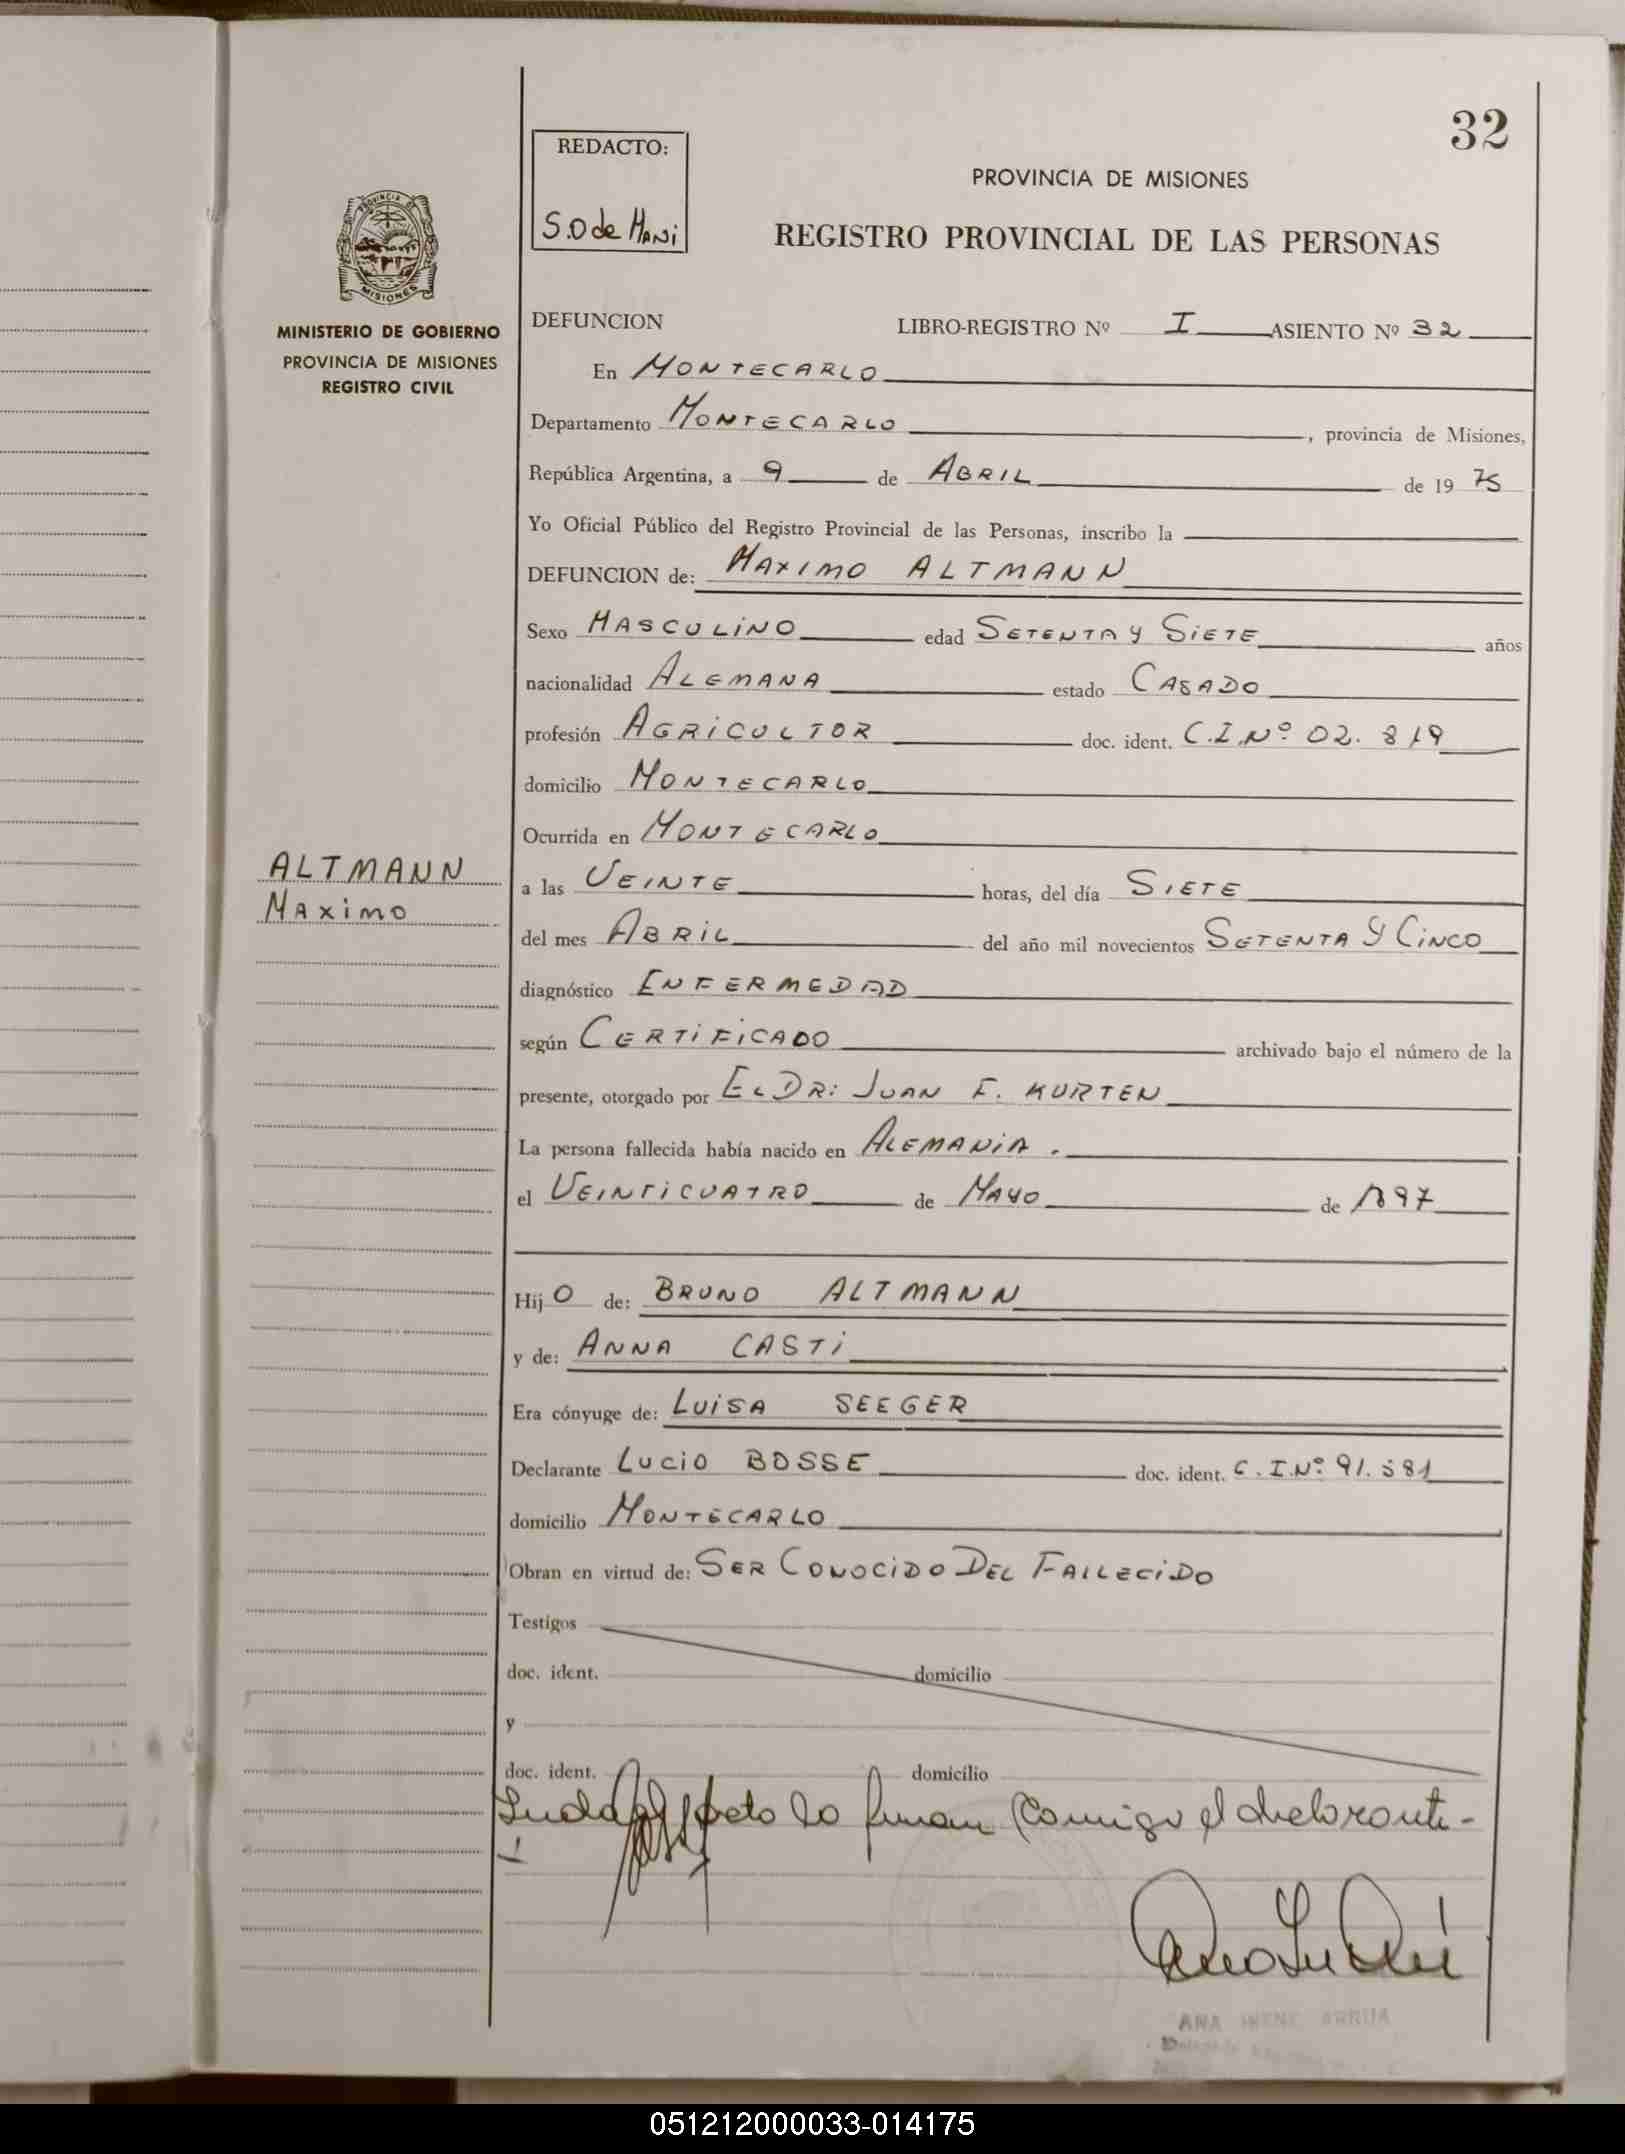 32
REDACTO:
S.O de MANi
PROVINCIA DE MISIONES
REGISTRO PROVINCIAL DE LAS PERSONAS
PROVINCIA DE
MISIONES
MINISTERIO DE GOBIERNO
PROVINCIA DE MISIONES
REGISTRO CIVIL
DEFUNCION LIBRO-REGISTRO Nº I ASIENTO Nº 32
En MONTECARLO
Departamento MONTECARLO, provincia de Misiones,
República Argentina, a 9 de ABRIL de 1975
Yo Oficial Público del Registro Provincial de las Personas, inscribo la
DEFUNCION de: MAXIMO ALTMANN
Sexo MASCULINO edad SETENTA y SiETE años
nacionalidad ALEMANA estado CASADO
profesión AGRiCULTOR doc. ident. C.I.Nº 02.819
domicilio MONTECARLO
Ocurrida en MONTECARLO
ALTMANN
MAXIMO
a las VEINTE horas, del día SIETE
del mes ABRIL del año mil novecientos SETENTA Y CiNCO
diagnóstico ENFERMEDAD
según CERTiFiCADO archivado bajo el número de la
presente, otorgado por EL DR: JUAN F. KURTEN
La persona fallecida había nacido en ALEMANiA.
el VEINTiCUATRO de MAYO de 1897
Hij O de: BRUNO ALTMANN
y de: ANNA CASTi
Era cónyuge de: LUiSA SEEGER
Declarante LUCiO BOSSE doc. ident. C.I.Nº 91.581
domicilio MONTECARLO
Obran en virtud de: SER CONOCiDO DEL FALLECiDO
Testigos
doc. ident. domicilio
y
doc. ident. domicilio
lo firman conmigo el declarante-
ANA IRENE ARRUA
051212000033-014175